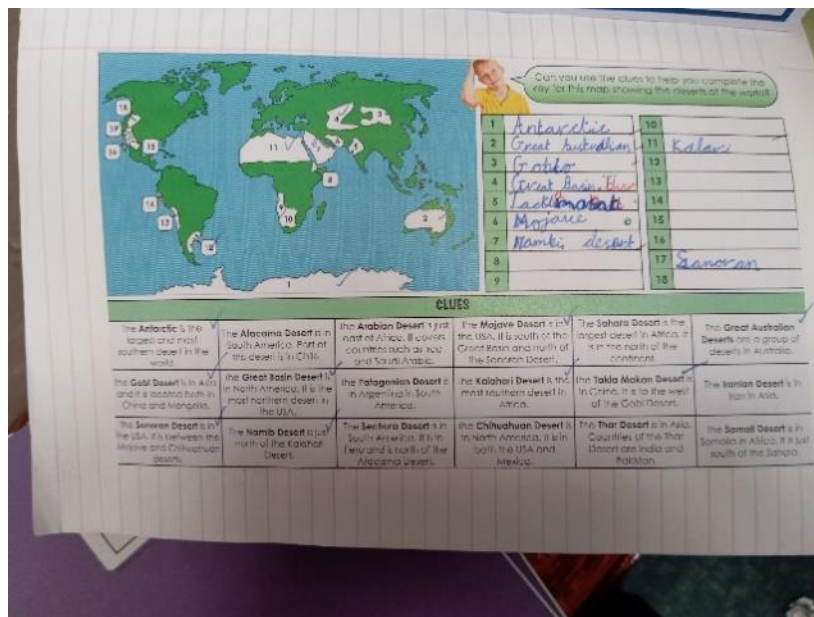 Can you use the clues to help you complete the
key for this map showing the deserts of the world?
1 Antarctic
2 Great Australian
3
4 Great Basin
5
6 Mojave
7 Namib desert
8
9
10
11
12
13
14
15
16
17 Sanoran
18
CLUES
The Antarctic is the
largest and most
southern desert in the
world.
The Atacama Desert is in
South America. Part of
this desert is in Chile.
The Arabian Desert is just
east of Africa. It covers
countries such as
and Saudi Arabia.
The Mojave Desert is in
the USA. It is south of the
Great Basin and north of
the Sonoran Desert.
The Sahara Desert is the
largest desert in Africa. It
is in the north of the
continent.
The Great Australian
Deserts are a group of
deserts in Australia.
The Gobi Desert is in Asia
and it is located both in
China and Mongolia.
The Great Basin Desert is
in North America. It is the
most northern desert in
the USA.
The Patagonian Desert is
in Argentina in South
America.
The Kalahari Desert is the
most southern desert in
Africa.
The Takla Makan Desert is
in China. It is to the west
of the Gobi Desert.
The Iranian Desert is in
Iran in Asia.
The Sonoran Desert is in
the USA. It is between the
Mojave and Chihuahuan
deserts.
The Namib Desert is just
north of the Kalahari
Desert.
The Sechura Desert is in
South America. It is in
Peru and is north of the
Atacama Desert.
The Chihuahuan Desert is
in North America. It is in
both the USA and
Mexico.
The Thar Desert is in Asia.
Countries of the Thar
Desert are India and
Pakistan.
The Somali Desert is in
Somalia in Africa. It is just
south of the Sahara.